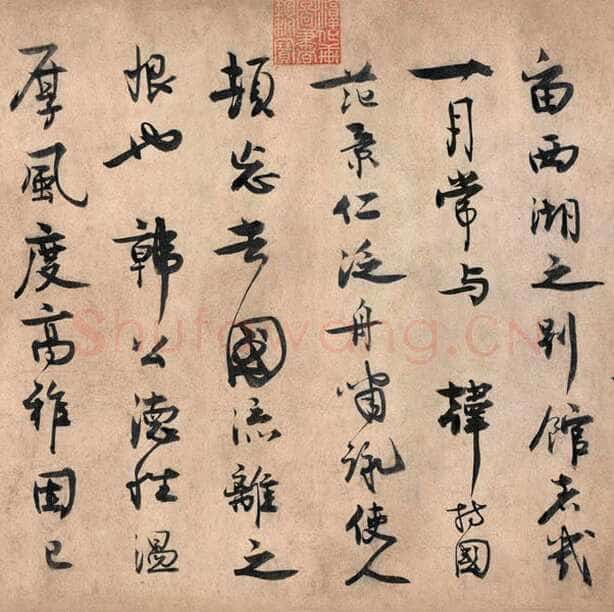 留西湖之別館者幾
一月常与 韓持國
范景仁泛舟嘯詠使人
頓忘去國流離之
恨也 韓公德性温
厚風度高雅固已
Shufawang.CN